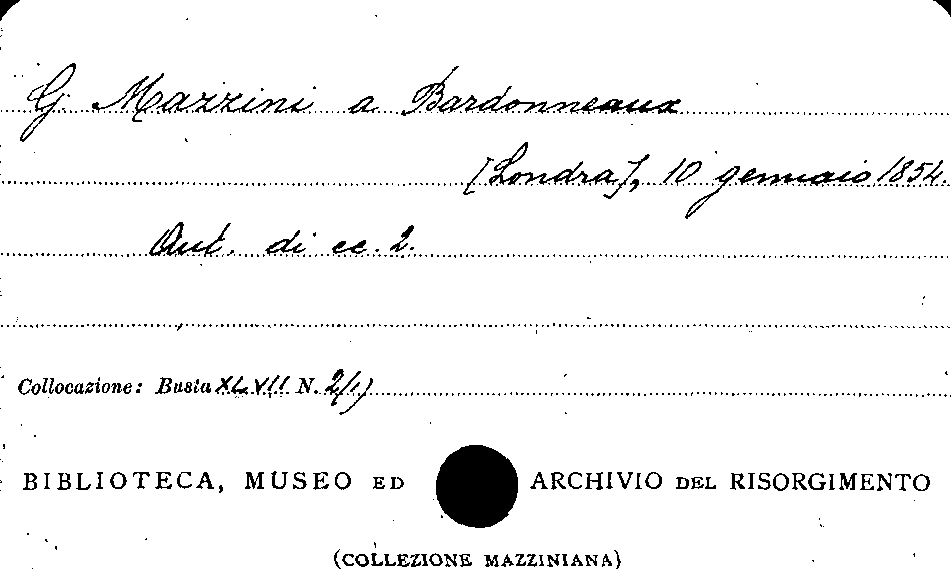 G. Mazzini a Bardonneaux
[Londra], 10 gennaio 1854.
Aut. di cc. 2.
Collocazione: Busta XLVII N. 2/1)
BIBLIOTECA, MUSEO ED ARCHIVIO DEL RISORGIMENTO
(COLLEZIONE MAZZINIANA)